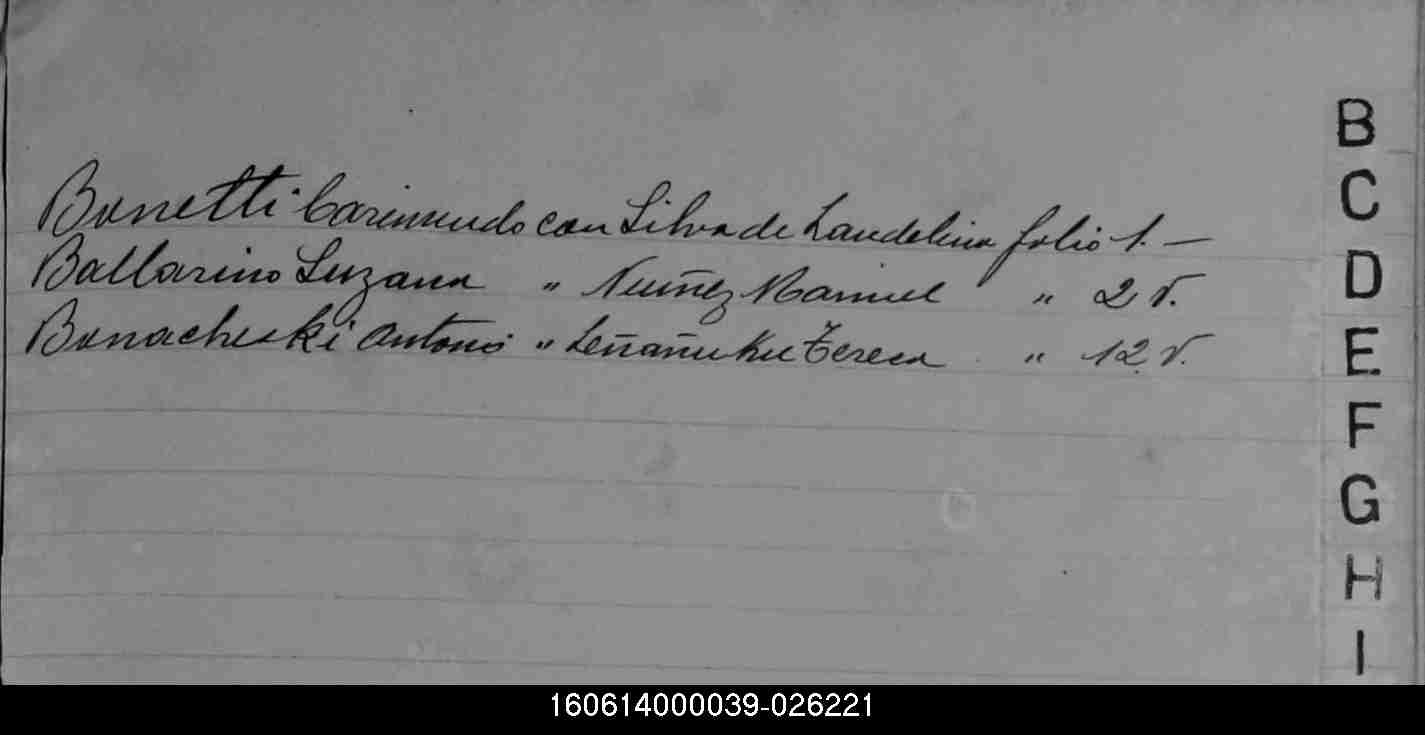 Bonetti Carimundo con Silva de Laudelina folio 1. —
Ballarino Luzana " Nuñez Manuel " 2 v.
Bonacheski Antonio " Teresa " 12 v.
B
C
D
E
F
G
H
I
160614000039-026221